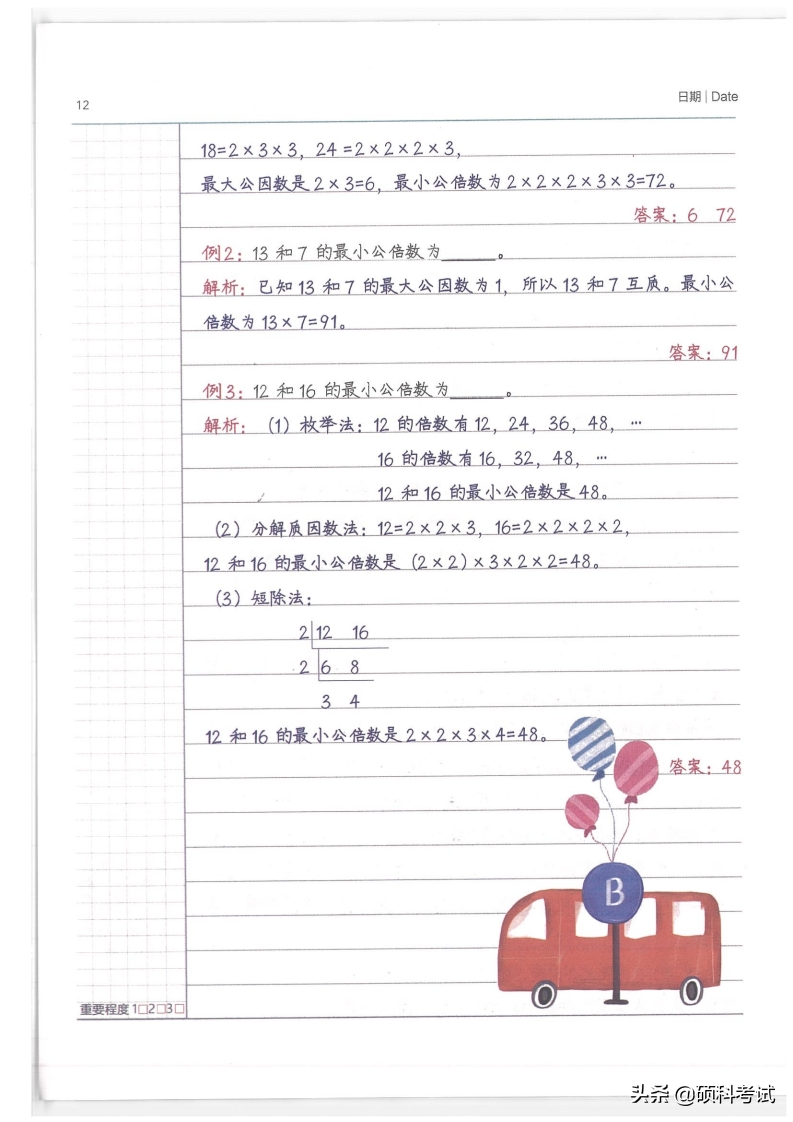 12
日期 | Date
18=2×3×3，24=2×2×2×3，
最大公因数是2×3=6，最小公倍数为2×2×2×3×3=72。
答案：6 72
例2：13和7的最小公倍数为______。
解析：已知13和7的最大公因数为1，所以13和7互质。最小公
倍数为13×7=91。
答案：91
例3：12和16的最小公倍数为______。
解析：（1）枚举法：12的倍数有12，24，36，48，…
16的倍数有16，32，48，…
12和16的最小公倍数是48。
（2）分解质因数法：12=2×2×3，16=2×2×2×2，
12和16的最小公倍数是（2×2）×3×2×2=48。
（3）短除法：
2 12 16
2 6 8
3 4
12和16的最小公倍数是2×2×3×4=48。
答案：48
B
重要程度1□2□3□
头条 @硕科考试